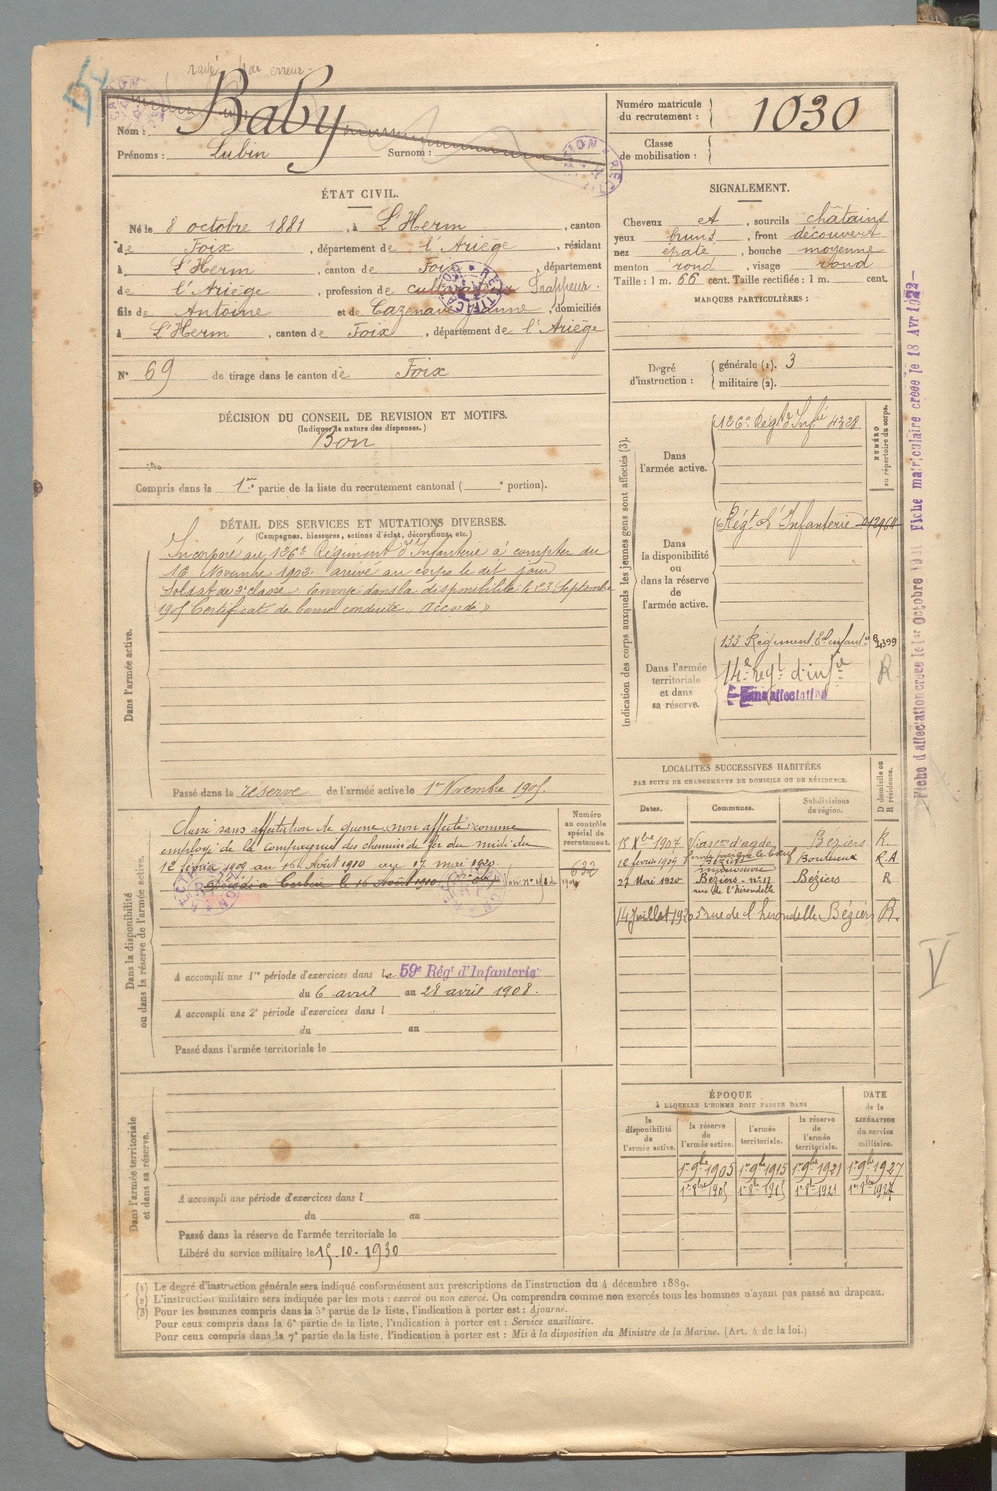 rayé par erreur
Nom : Baby
Prénoms : Lubin Surnom :
Numéro matricule du recrutement : 1030
Classe de mobilisation :
ÉTAT CIVIL.
Né le 8 octobre 1881, à L'Herm, canton
de Foix, département de l'Ariège, résidant
à L'Herm, canton de Foix, département
de l'Ariège, profession de cultivateur
fils de Antoine et de Cazenave Jeanne, domiciliés
à L'Herm, canton de Foix, département de l'Ariège
N° 69 de tirage dans le canton de Foix
SIGNALEMENT.
Cheveux et, sourcils châtains
yeux bruns, front découvert
nez épaté, bouche moyenne
menton rond, visage rond
Taille : 1 m. 66 cent. Taille rectifiée : 1 m. cent.
MARQUES PARTICULIÈRES :
Degré d'instruction : générale (1). 3
militaire (2).
DÉCISION DU CONSEIL DE REVISION ET MOTIFS.
(Indiquer la nature des dispenses.)
Bon
Compris dans la 1re partie de la liste du recrutement cantonal ( e portion).
DÉTAIL DES SERVICES ET MUTATIONS DIVERSES.
(Campagnes, blessures, actions d'éclat, décorations, etc.)
Dans l'armée active.
Incorporé au 126e Régiment d'Infanterie à compter du
16 Novembre 1902 arrivé au corps le dit jour
Soldat de 2e classe. Envoyé dans la disponibilité le 23 Septembre
1905 Certificat de bonne conduite "Accordé"
Passé dans la réserve de l'armée active le 1er Novembre 1905.
Indication des corps auxquels les jeunes gens sont affectés (3).
NUMÉRO au répertoire du corps.
Dans l'armée active.
126e Régt d'Infie 4328
Dans la disponibilité ou dans la réserve de l'armée active.
Régt d'Infanterie
Dans l'armée territoriale et dans sa réserve.
133 Régiment d'infant.
14e régt d'infie R
Sans affectation
Fiche d'affectation créée le 1er octobre Fiche matriculaire créée le 18 Avr 1922
Dans la disponibilité ou dans la réserve de l'armée active.
Numéro au contrôle spécial de recrutement.
632
Classé sans affectation de guerre, non affecté comme
employé de la compagnie des chemins de fer du midi du
12 février 1909 au 16 Août 1910 au 17 mai 1920
Décédé à le 16 Août 1910
A accompli une 1re période d'exercices dans le 59e Régt d'Infanterie
du 6 avril au 28 avril 1908.
A accompli une 2e période d'exercices dans l
du au
Passé dans l'armée territoriale le
LOCALITÉS SUCCESSIVES HABITÉES
PAR SUITE DE CHANGEMENTS DE DOMICILE OU DE RÉSIDENCE.
Dates. Communes. Subdivisions de région. D domicile ou R résidence.
15 Xbre 1907 Vias cne d'agde Béziers R.
12 février 1909 Bordeaux R.A
27 Mai 1920 Béziers n° 17 rue de l'hirondelle Béziers R
14 Juillet 1920 5 rue de l'hirondelle Béziers R.
V
Dans l'armée territoriale et dans sa réserve.
A accompli une période d'exercices dans l
du au
Passé dans la réserve de l'armée territoriale le
Libéré du service militaire le 15-10-1930
ÉPOQUE
À LAQUELLE L'HOMME DOIT PASSER DANS
DATE de la LIBÉRATION du service militaire.
la disponibilité de l'armée active. la réserve de l'armée active. l'armée territoriale. la réserve de l'armée territoriale.
1er 9bre 1905 1er 9bre 1915 1er 9bre 1921 1er 9bre 1927
(1) Le degré d'instruction générale sera indiqué conformément aux prescriptions de l'instruction du 4 décembre 1889.
(2) L'instruction militaire sera indiquée par les mots : exercé ou non exercé. On comprendra comme non exercés tous les hommes n'ayant pas passé au drapeau.
(3) Pour les hommes compris dans la 5e partie de la liste, l'indication à porter est : Ajourné.
Pour ceux compris dans la 6e partie de la liste, l'indication à porter est : Service auxiliaire.
Pour ceux compris dans la 7e partie de la liste, l'indication à porter est : Mis à la disposition du Ministre de la Marine. (Art. 4 de la loi.)